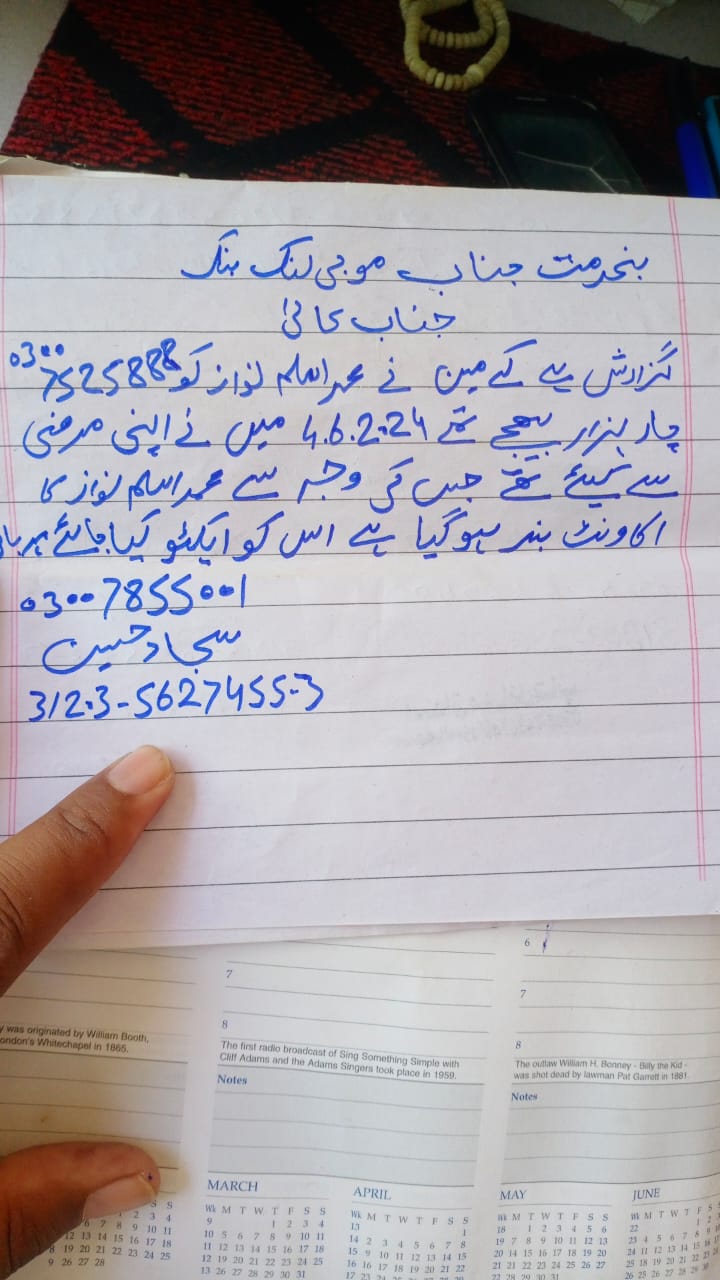 بخدمت جناب موبی لنک بنک
جناب عالیٰ
گزارش ہے کے مین نے محمد اسلم نواز کو 03007525888
چار ہزار بھیجے تھے 4.6.2024 میں نے اپنی مرضی
سے کیئے تھے جس کی وجہ سے محمد اسلم نواز کا
اکاونٹ بند ہوگیا ہے اس کو ایکٹو کیا جائے
03007855001
سجاد حسین
31203-5627455-3
6
7
7
8
8
y was originated by William Booth,
ondon's Whitechapel in 1865.
The first radio broadcast of Sing Something Simple with
Cliff Adams and the Adams Singers took place in 1959.
The outlaw William H. Bonney - Billy the Kid -
was shot dead by lawman Pat Garrett in 1881.
Notes
Notes
S S
1 2 3 4
6 7 8 9 10 11
12 13 14 15 16 17 18
8 19 20 21 22 23 24 25
9 26 27 28
MARCH
Wk M T W T F S S
9 1 2 3 4
10 5 6 7 8 9 10 11
11 12 13 14 15 16 17 18
12 19 20 21 22 23 24 25
13 26 27 28 29 30 31
APRIL
Wk M T W T F S S
13 1
14 2 3 4 5 6 7 8
15 9 10 11 12 13 14 15
16 16 17 18 19 20 21 22
17 23 24
MAY
Wk M T W T F S S
18 1 2 3 4 5 6
19 7 8 9 10 11 12 13
20 14 15 16 17 18 19 20
21 21 22 23 24 25 26 27
22 28 29 30 31
JUNE
Wk M T W T F S
22 1 2
23 4 5 6 7 8 9
24 11 12 13 14 15 16
25 18 19 20 21 22
26 25 26 27 28